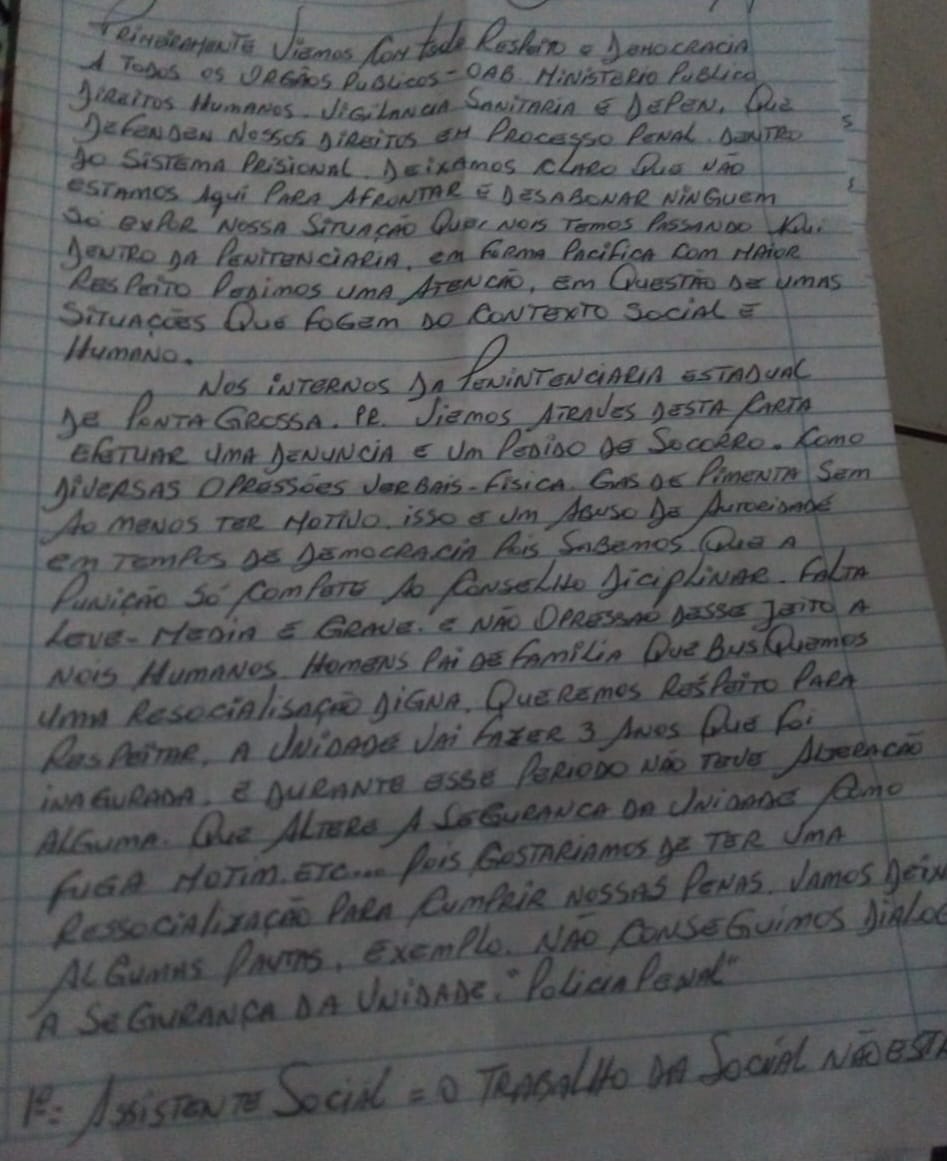 Primeiramente Viemos Com todo Respeito e Democracia
A Todos os Orgãos Publicos - OAB. Ministerio Publico,
Direitos Humanos. Vigilancia Sanitaria e DEPEN, Que
Defenden Nossos Direitos em Processo Penal. Dentro
do Sistema Prisional. Deixamos claro Que não
estamos Aqui Para Afrontar e desabonar ninguem
Só expor nossa situação Que nois temos passando Aqui
Dentro da Penitenciaria, em forma Pacifica com maior
Respeito Pedimos uma Atencão, em Questão de umas
Situações Que fogem do contexto social e
Humano.
Nos internos da Penintenciaria estadual
de Ponta Grossa. PR. Viemos Atraves desta carta
efetuar uma denuncia e um Pedido de Socorro. Como
diversas opressões verbais - física. Gas de Pimenta Sem
Ao menos ter motivo. isso e um Abuso de Autoridade
em tempos de democracia Pois Sabemos Que a
Punição só compete Ao Conselho Diciplinar. Falta
Leve - Media e Grave. e não opressão desse jeito a
nois Humanos. Homens Pai de familia Que Busquemos
uma Resocialisação digna. Queremos Respeito Para
Respeitar. A Unidade vai fazer 3 Anos Que foi
inagurada. e durante esse Periodo não teve Alteracão
Alguma. Que Altere A Seguranca da Unidade como
fuga motim. etc... Pois Gostariamos de ter uma
Ressocialização Para Cumprir nossas Penas. Vamos Deix
Algumas Pautas. Exemplo. Não conseguimos Dialo
A Segurança da Unidade. "Policia Penal"
1º = Assistente Social = o Trabalho da Social não está